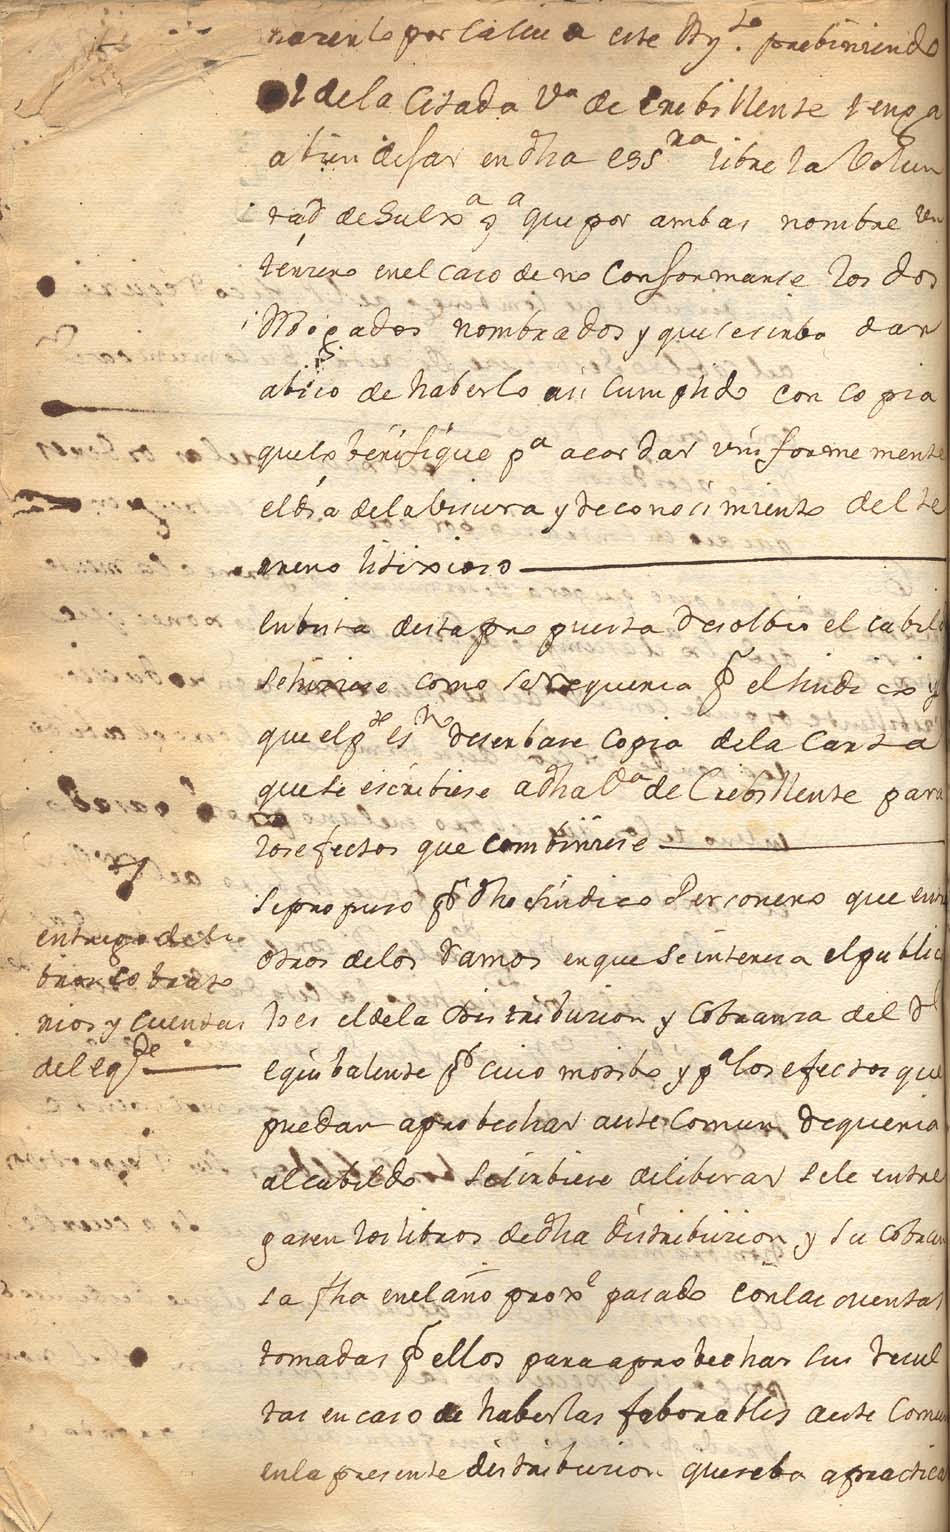 por este Ay.to prebiniendo
de la Citada Va de Crebillente tenga
a bien desar en dha Essna libre la Volun
tad de Su Exa pa que por ambas nombre un
terzero en el caso de no Consformarse los dos
Abogados nombrados y que se sirba dar
abiso de haberlo asi Cumplido con copia
que lo berifique pa acordar uniformemente
el dia de la bisura y reconosimiento del te
rreno litixioso
En bista desta propuesta resolbio el cabild
se hisiese como se requeria pr el sindico y
que el pte esno reserbase Copia de la Carta
que se escribiese a dha Va de Crebillente para
los efectos que combiniese
Se propuso pr dho sindico Personero que entre
otros de los ramos en que se interesa el public
es el de la Distribusion y Cobransa del Rl
equibalente pr cuio motibo y pa los efectos que
puedan aprobechar a este Comun requeria
al cabildo se sirbiese deliberar se le entre
gasen los libros de dha distribusion y su cobran
sa fha en el año proxo pasado con las cuentas
tomadas pr ellos para aprobechar sus resul
tas en caso de haberlas faborables a este Comun
en la presente distribusion que se ba a practica
entrego de li
bros cobrato
rios y cuentas
del eqte